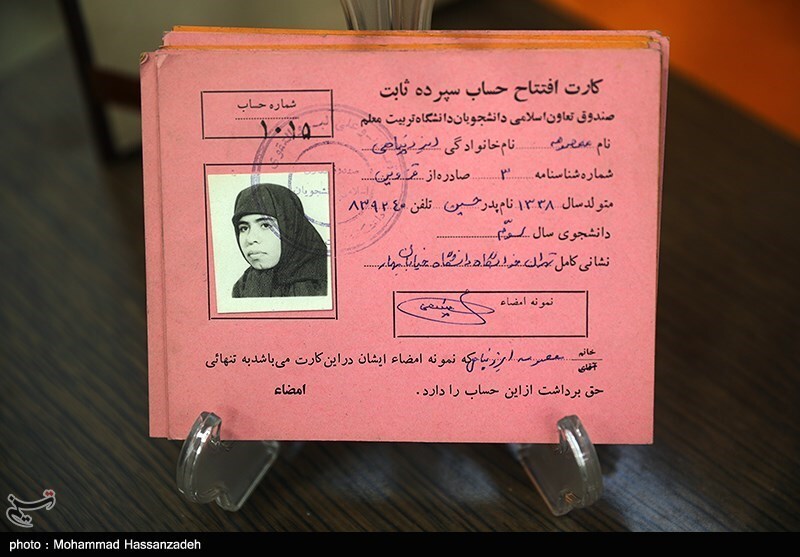 کارت افتتاح حساب سپرده ثابت
صندوق تعاون اسلامی دانشجویان دانشگاه تربیت معلم
شماره حساب
۱۰۱۵
نام معصومه نام خانوادگی
شماره شناسنامه ۳ صادره از قزوین
متولد سال ۱۳۳۸ نام پدر حسین تلفن ۸۳۹۲۴۰
دانشجوی سال سوم
نشانی کامل تهران دانشگاه خیابان بهار
نمونه امضاء
خانم
آقای
معصومه که نمونه امضاء ایشان در این کارت می‌باشد به تنهائی
حق برداشت از این حساب را دارد. امضاء
تسنیم
photo : Mohammad Hassanzadeh